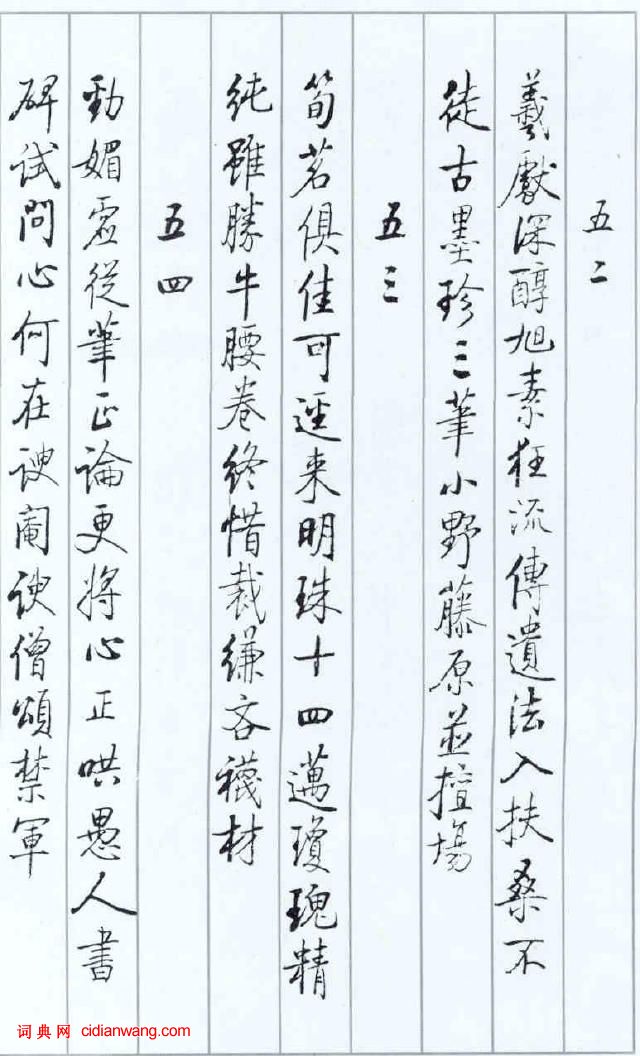 五二
羲獻深醇旭素狂流傳遺法入扶桑不
徒古墨珍三筆小野藤原並擅場
五三
筍茗俱佳可逕来明珠十四邁瓊瑰精
純雖勝牛腰卷終惜裁縑吝襪材
五四
勁媚虛從筆正論更將心正哄愚人書
碑試問心何在諛閹諛僧頌禁軍
词典网 cidianwang.com